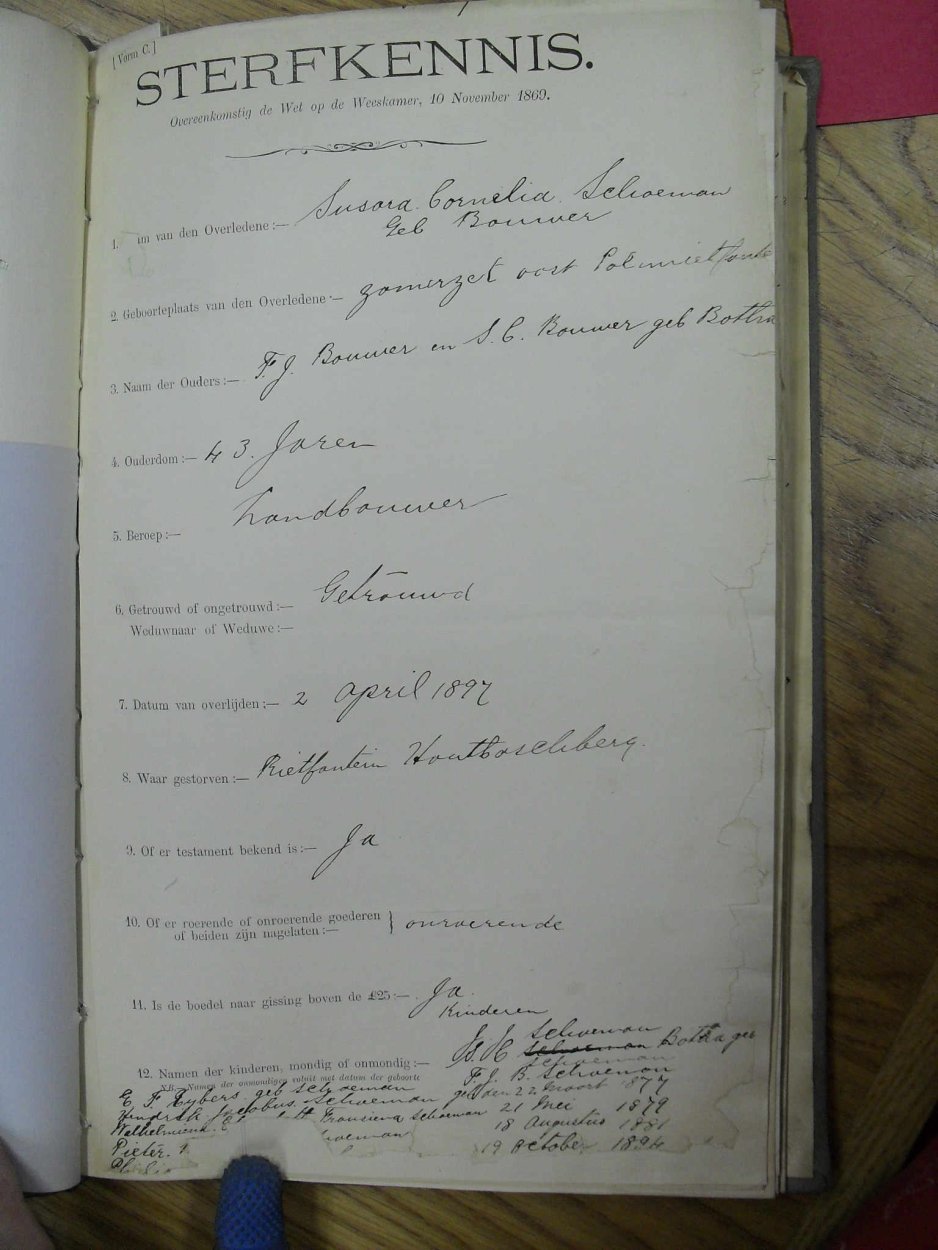 [Vorm C.]
STERFKENNIS.
Overeenkomstig de Wet op de Weeskamer, 10 November 1869.
1. m van den Overledene:— Susara Cornelia Schoeman
Geb Bouwer
2. Geboorteplaats van den Overledene:— zomerzet oost
3. Naam der Ouders:— F. J. Bouwer en S. C. Bouwer geb Botha
4. Ouderdom:— 43. Jaren
5. Beroep:— Landbouwer
6. Getrouwd of ongetrouwd:— Getrouwd
Weduwnaar of Weduwe:—
7. Datum van overlijden:— 2 april 1897
8. Waar gestorven:— Rietfontein Houtboschberg.
9. Of er testament bekend is:— Ja
10. Of er roerende of onroerende goederen
of beiden zijn nagelaten:— } onroerende
11. Is de boedel naar gissing boven de £25:— Ja
Kinderen
Schoeman
12. Namen der kinderen, mondig of onmondig:— Schoeman Botha geb
Schoeman
N.B.—Namen der onmondigen voluit met datum der geboorte F. J. B. Schoeman
E. F. Rybers geb Schoeman
Hendrik Jacobus Schoeman geb den 22 Maart 1877
Wilhelmina Schoeman 21 Mei 1879
Pieter 18 Augustus 1881
19 October 1894